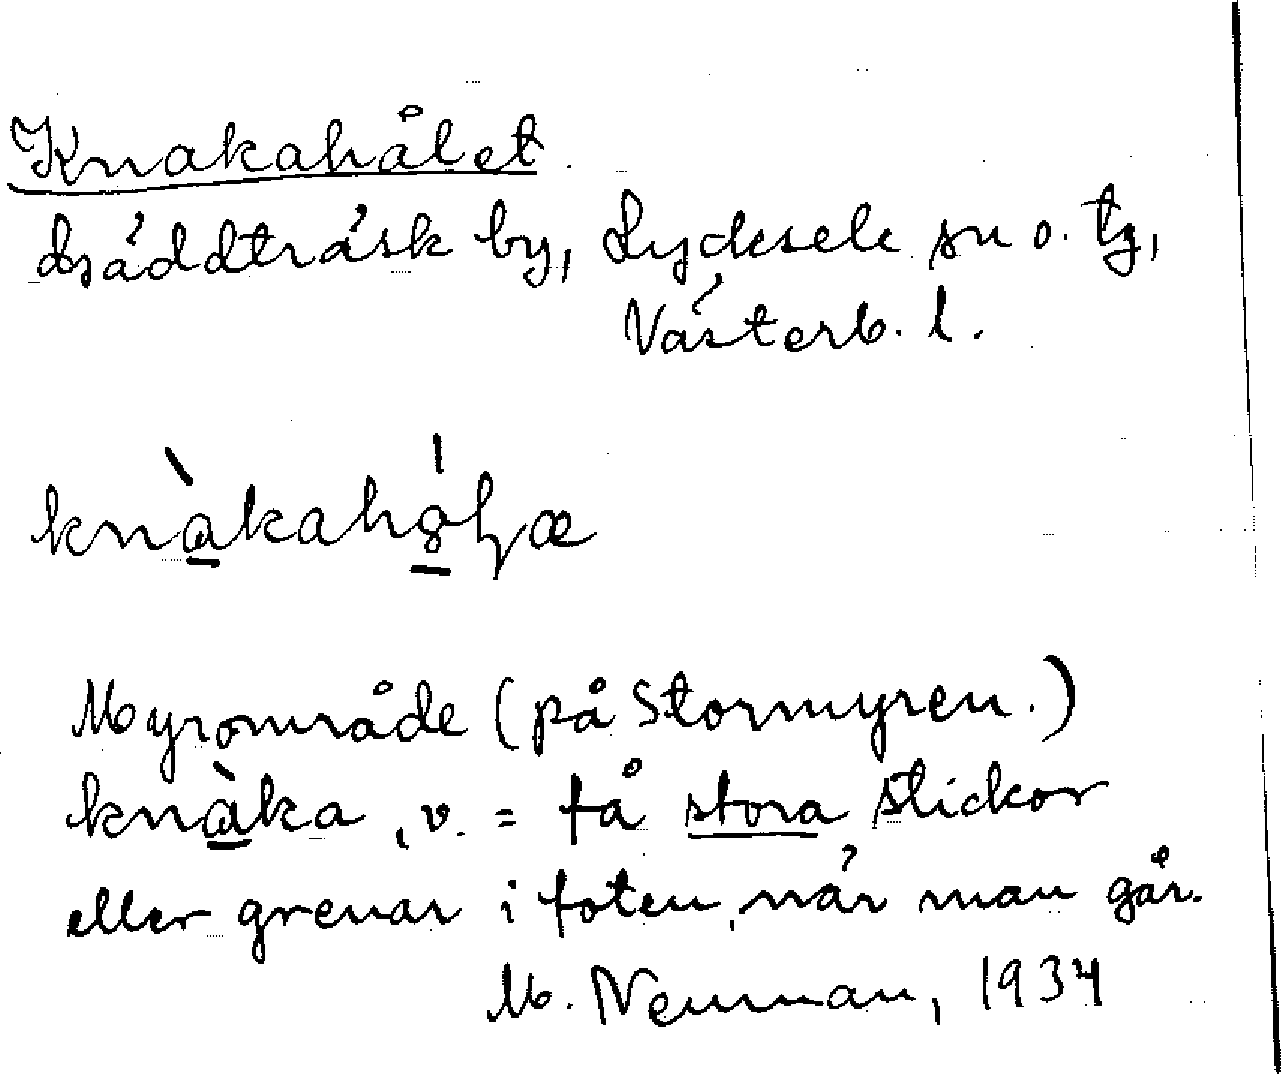 Knakahålet
Bjäddträsk by, Lycksele sn o. tg,
Västerb. l.
knàkahó̱ḷæ
Myrområde (på Stormyren.)
knàka, v. = få stora stickor
eller grenar i foten, när man går.
M. Neuman, 1934